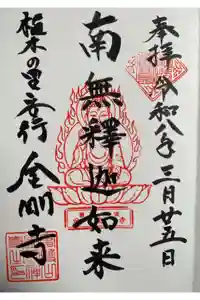 奉拝 令和八年三月廿五日
南無釋迦如来
植木の里奥行
金剛寺